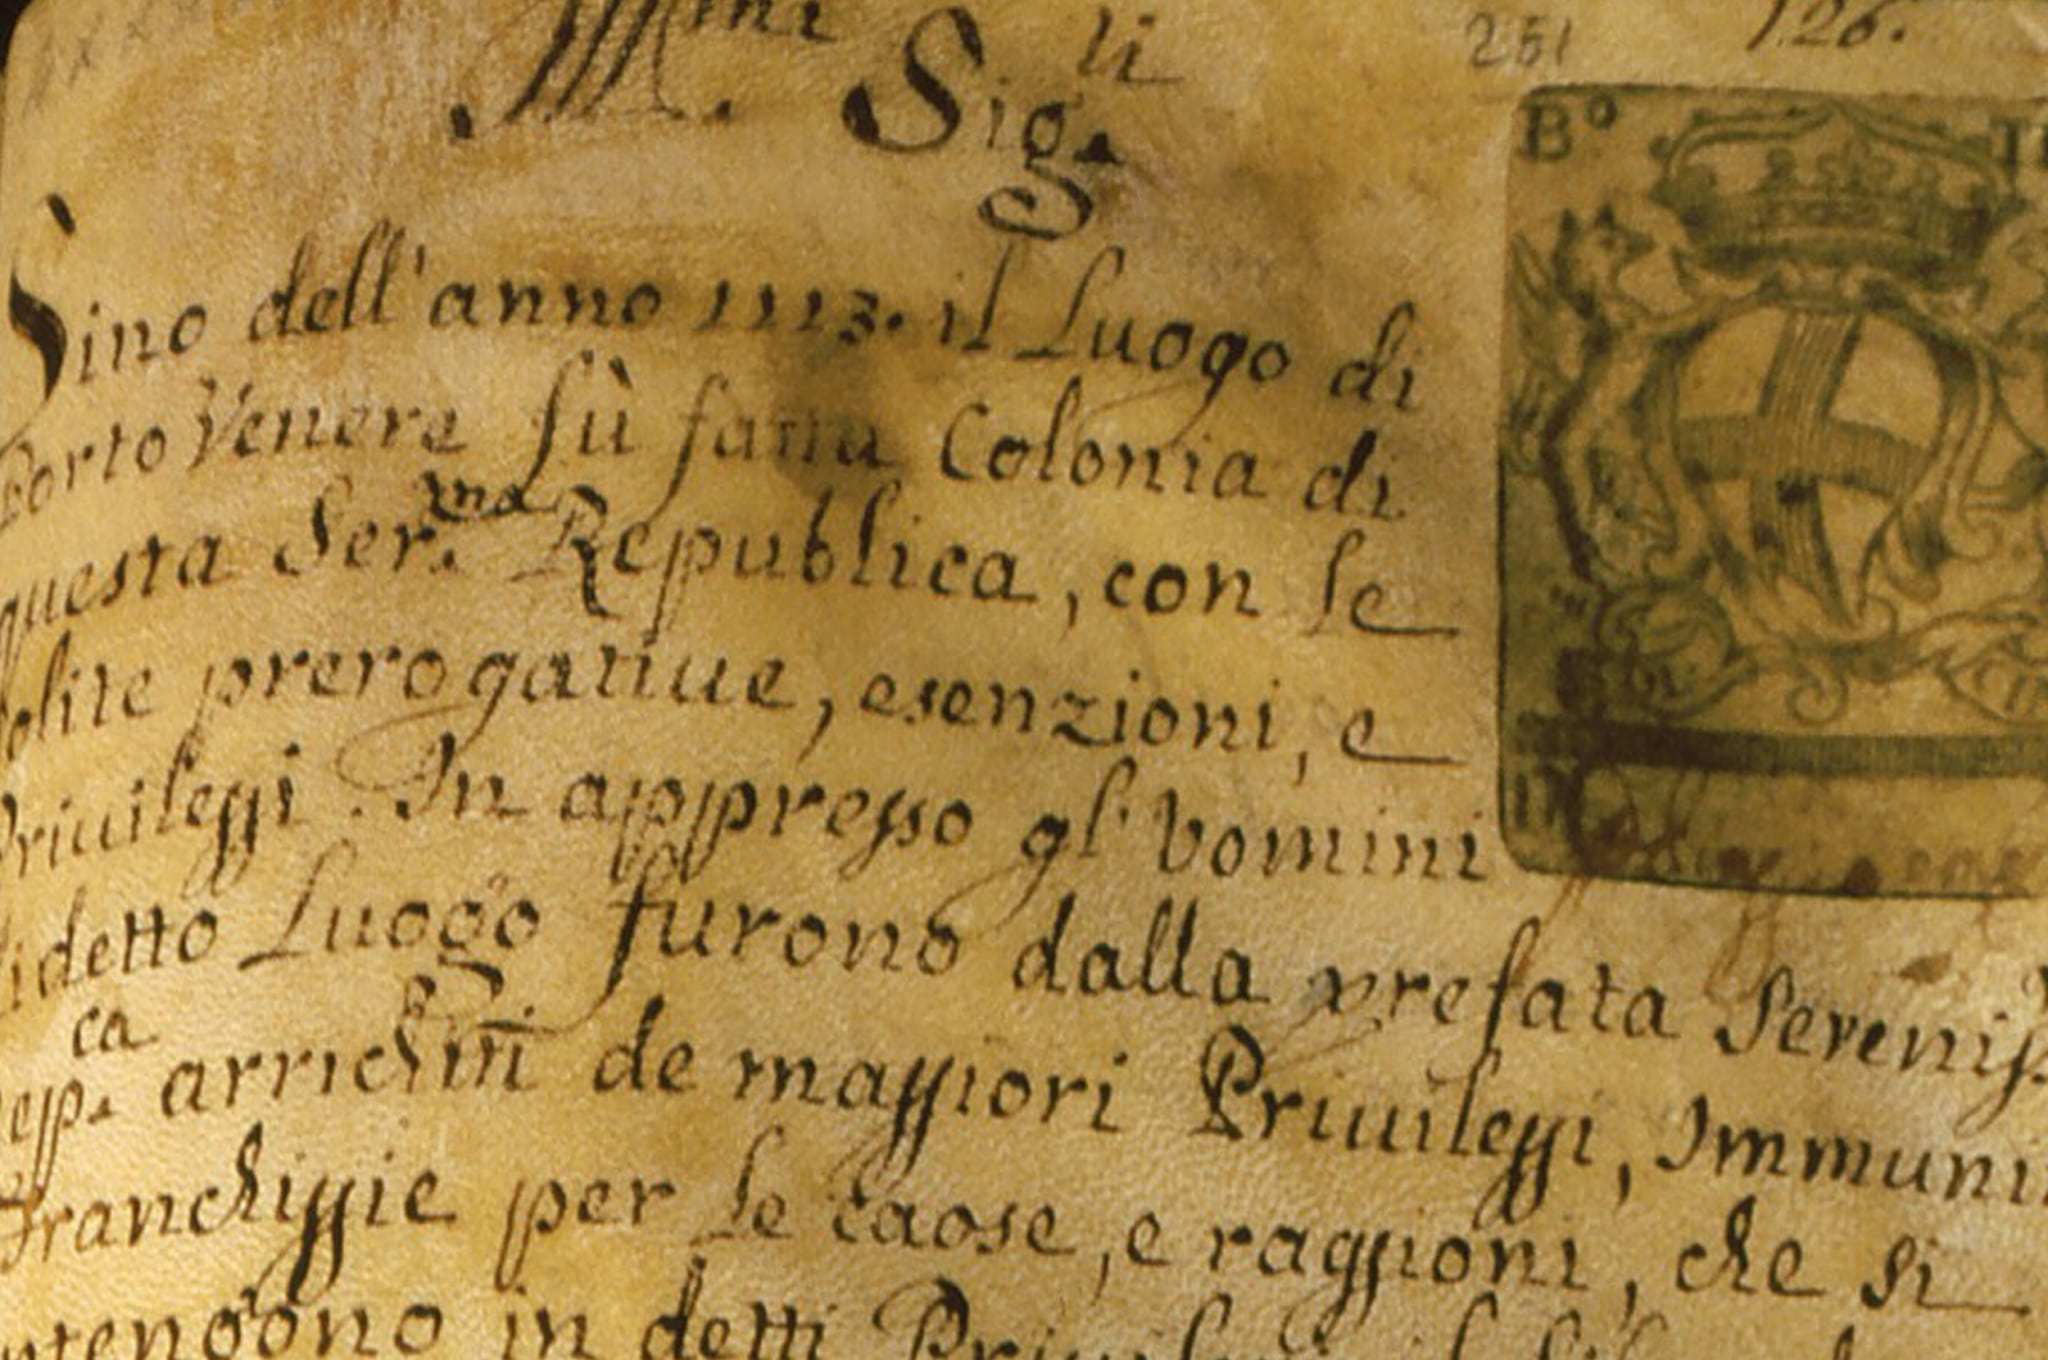 M.mi Sig.li
251
126.
Bº
Sino dell'anno 1113. il Luogo di
Porto Venere fù fatta Colonia di
questa Ser.ma Republica, con le
solite prerogatiue, esenzioni, e
Priuileggi. In appresso gl' vomini
di detto Luogo furono dalla prefata Sereniss.
Rep.ca arrichiti de maggiori Priuileggi, Immuni
Franchiggie per le caose, e raggioni, che si
ntengono in detti